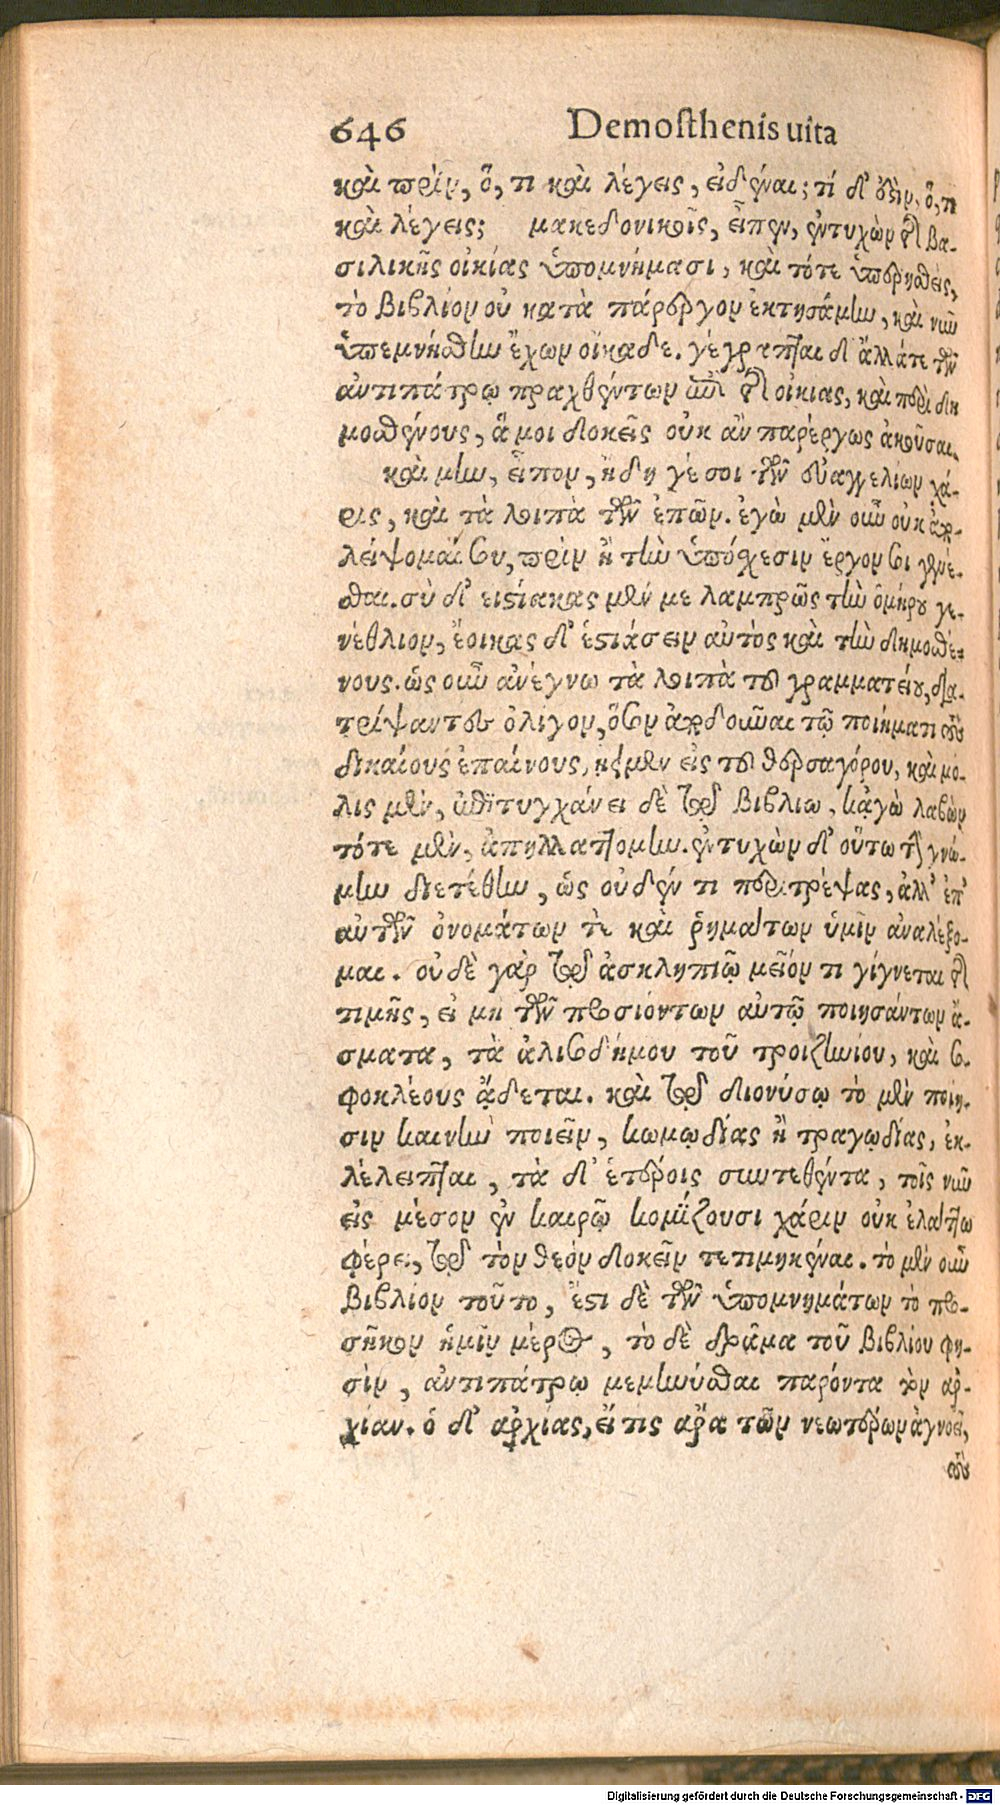 646 Demosthenis uita
καὶ πρὶν, ὅ, τι καὶ λέγεις, εἰδέναι; τί δ' ἔστιν, ὅ, τι
καὶ λέγεις; μακεδονικοῖς, εἶπεν, ἐντυχὼν τῆς βα-
σιλικῆς οἰκίας ὑπομνήμασι, καὶ τότε ὑπερησθεὶς,
τὸ βιβλίον οὐ κατὰ πάρεργον ἐκτησάμην, καὶ νῦν
ὑπεμνήσθην ἔχων οἴκαδε. γέγραπται δ' ἄλλά τε τῶν
ἀντιπάτρῳ πραχθέντων ἐπὶ τῆς οἰκίας, καὶ περὶ δη
μοσθένους, ἅ μοι δοκεῖς οὐκ ἂν παρέργως ἀκοῦσαι.
καὶ μὴν, εἶπον, ἤδη γέ σοι τῶν εὐαγγελίων χά-
ρις, καὶ τὰ λοιπὰ τῶν ἐπῶν. ἐγὼ μὲν οὖν οὐκ ἀπο-
λείψομαί σου, πρὶν ἢ τὴν ὑπόσχεσιν ἔργον σοι γενέ-
σθαι. σὺ δ' εἱστίακας μέν με λαμπρῶς τὴν ὁμήρου γε-
νέθλιον, ἔοικας δ' ἑστιάσειν αὐτὸς καὶ τὴν δημοσθέ-
νους. ὡς οὖν ἀνέγνω τὰ λοιπὰ τοῦ γραμματείου, δια-
τρίψαντες ὀλίγον, ὅσον ἀποδοῦναι τῷ ποιήματι τοὺς
δικαίους ἐπαίνους, ᾖμεν εἰς τοῦ θερσαγόρου, καὶ μό-
λις μὲν, ἐπιτυγχάνει δὲ τοῦ βιβλίω, κᾀγὼ λαβὼν
τότε μὲν, ἀπηλλαττόμην. ἐντυχὼν δ' οὕτω τὴν γνώ-
μην διετέθην, ὡς οὐδέν τι περιτρέψας, ἀλλ' ἐπ'
αὐτῶν ὀνομάτων τὲ καὶ ῥημάτων ὑμῖν ἀναλέξο-
μαι. οὐδὲ γὰρ τῷ ἀσκληπιῷ μεῖόν τι γίγνεται τῆς
τιμῆς, εἰ μὴ τῶν προσιόντων αὐτῷ ποιησάντων ᾄ-
σματα, τὰ ἀλισοδήμου τοῦ τροιζηνίου, καὶ σο-
φοκλέους ᾄδεται. καὶ τῷ διονύσῳ τὸ μὲν ποίη-
σιν καινὴν ποιεῖν, κωμῳδίας ἢ τραγῳδίας, ἐκ-
λέλειπται, τὰ δ' ἑτέροις συντεθέντα, τοῖς νῦν
εἰς μέσον ἐν καιρῷ κομίζουσι χάριν οὐκ ἐλάττω
φέρει, τῷ τὸν θεὸν δοκεῖν τετιμηκέναι. τὸ μὲν οὖν
βιβλίον τοῦτο, ἔστι δὲ τῶν ὑπομνημάτων τὸ προ-
σῆκον ἡμῖν μέρος, τὸ δὲ δρᾶμα τοῦ βιβλίου φη-
σὶν, ἀντιπάτρῳ μεμηνῦσθαι παρόντα τὸν ἀρ-
χίαν. ὁ δ' ἀρχίας, εἴ τις ἄρα τῶν νεωτέρων ἀγνοεῖ,
τοὺς
Digitalisierung gefördert durch die Deutsche Forschungsgemeinschaft - DFG